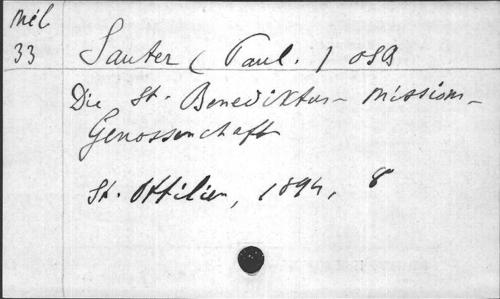 Mél
33 Sauter (Paul.) OSB
Die St. Benediktus- Missions-
Genossenschaft
St. Ottilien, 1894, 8